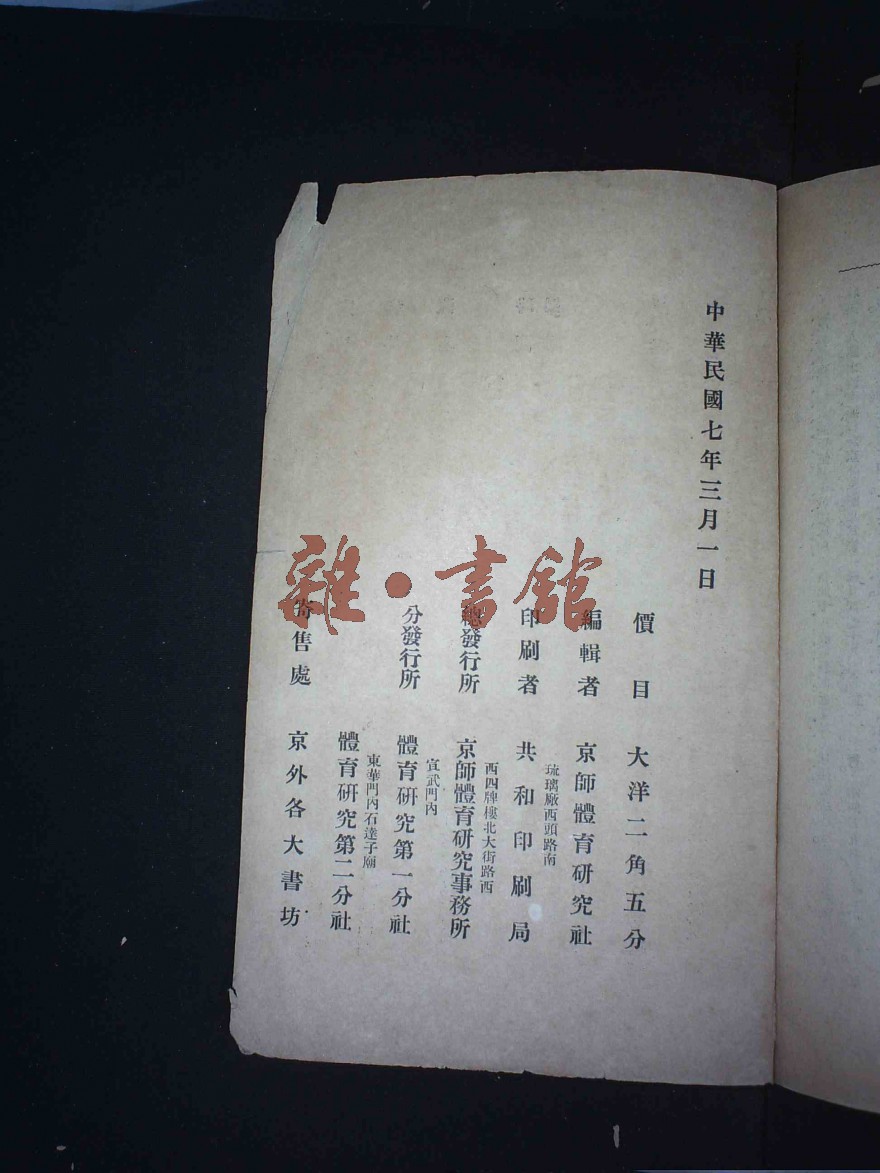 中華民國七年三月一日
價目 大洋二角五分
編輯者 京師體育研究社
琉璃厰西頭路南
印刷者 共和印刷局
西四牌樓北大街路西
總發行所 京師體育研究事務所
宣武門內
分發行所 體育研究第一分社
東華門內石達子廟
體育研究第二分社
寄售處 京外各大書坊
雜·書館